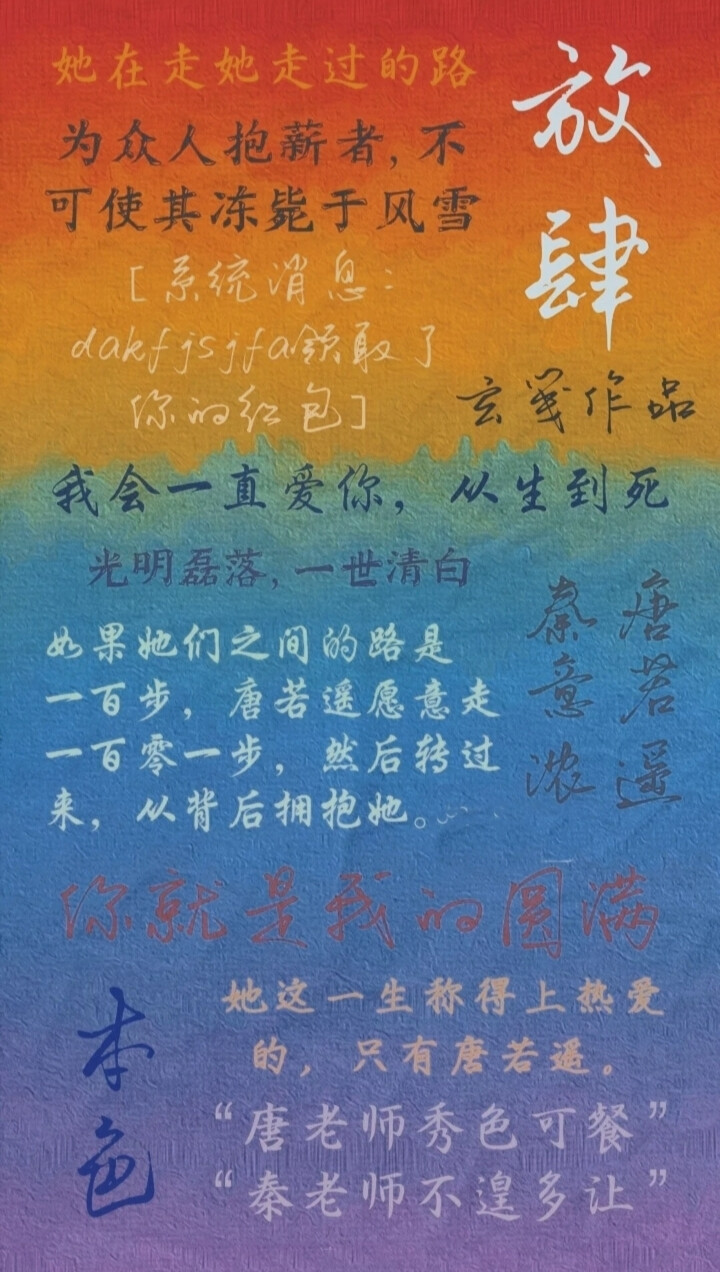 她在走她走过的路
放肆
为众人抱薪者，不
可使其冻毙于风雪
[系统消息：
dakfjsjfa领取了
你的红包]
玄笺作品
我会一直爱你，从生到死
光明磊落，一世清白
唐若遥
秦意浓
如果她们之间的路是
一百步，唐若遥愿意走
一百零一步，然后转过
来，从背后拥抱她。
你就是我的圆满
本色
她这一生称得上热爱
的，只有唐若遥。
“唐老师秀色可餐”
“秦老师不遑多让”